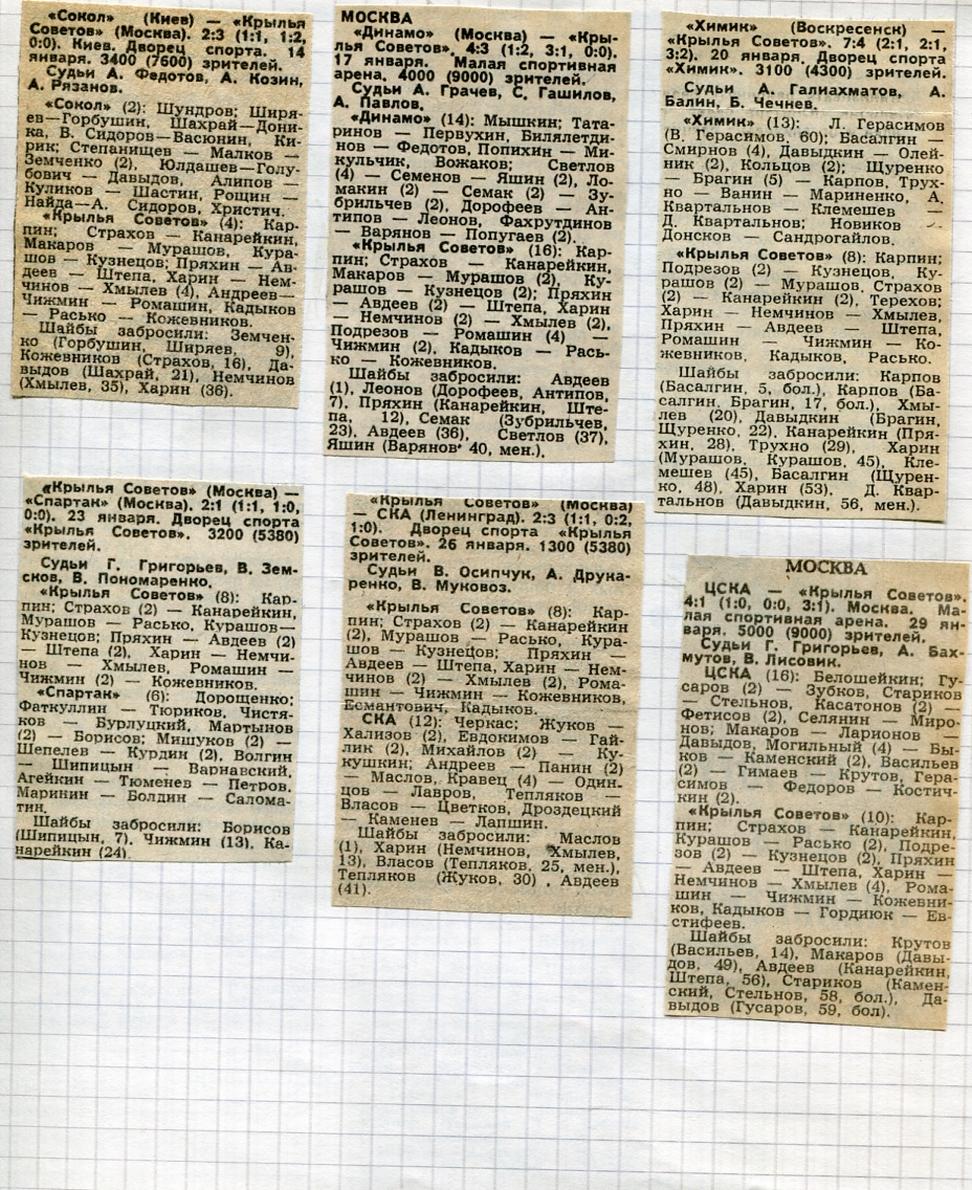 «Сокол» (Киев) — «Крылья
Советов» (Москва). 2:3 (1:1, 1:2,
0:0). Киев. Дворец спорта. 14
января. 3400 (7600) зрителей.
Судьи А. Федотов, А. Козин,
А. Рязанов.
«Сокол» (2): Шундров; Ширя-
ев—Горбушин, Шахрай—Дони-
ка, В. Сидоров—Васюнин, Ки-
рик; Степанищев — Малков —
Земченко (2), Юлдашев—Голу-
бович — Давыдов, Алипов —
Куликов — Шастин, Рощин —
Найда—А. Сидоров, Христич.
«Крылья Советов» (4): Кар-
пин; Страхов — Канарейкин,
Макаров — Мурашов, Кура-
шов — Кузнецов; Пряхин — Ав-
деев — Штепа, Харин — Нем-
чинов — Хмылев (4), Андреев—
Чижмин — Ромашин, Кадыков
— Расько — Кожевников.
Шайбы забросили: Земчен-
ко (Горбушин, Ширяев, 9),
Кожевников (Страхов, 16), Да-
выдов (Шахрай, 21), Немчинов
(Хмылев, 35), Харин (36).
МОСКВА
«Динамо» (Москва) — «Кры-
лья Советов». 4:3 (1:2, 3:1, 0:0).
17 января. Малая спортивная
арена. 4000 (9000) зрителей.
Судьи А. Грачев, С. Гашилов,
А. Павлов.
«Динамо» (14): Мышкин; Тата-
ринов — Первухин, Билялетди-
нов — Федотов, Попихин — Ми-
кульчик, Вожаков; Светлов
(4) — Семенов — Яшин (2), Ло-
макин (2) — Семак (2) — Зу-
брильчев (2), Дорофеев — Ан-
типов — Леонов, Фахрутдинов
— Варянов — Попугаев (2).
«Крылья Советов» (16): Кар-
пин; Страхов — Канарейкин,
Макаров — Мурашов (2), Ку-
рашов — Кузнецов (2); Пряхин
— Авдеев (2) — Штепа, Харин
— Немчинов (2) — Хмылев (2),
Подрезов — Ромашин (4) —
Чижмин (2), Кадыков — Рась-
ко — Кожевников.
Шайбы забросили: Авдеев
(1), Леонов (Дорофеев, Антипов,
7), Пряхин (Канарейкин, Ште-
па, 12), Семак (Зубрильчев,
23), Авдеев (36), Светлов (37),
Яшин (Варянов, 40, мен.).
«Химик» (Воскресенск) —
«Крылья Советов». 7:4 (2:1, 2:1,
3:2). 20 января. Дворец спорта
«Химик». 3100 (4300) зрителей.
Судьи А. Галиахматов, А.
Балин, Б. Чечнев.
«Химик» (13): Л. Герасимов
(В. Герасимов, 60); Басалгин —
Смирнов (4), Давыдкин — Олей-
ник (2), Кольцов (2); Щуренко
— Брагин (5) — Карпов, Трух-
но — Ванин — Мариненко, А.
Квартальнов — Клемешев —
Д. Квартальнов; Новиков —
Донсков — Сандрогайлов.
«Крылья Советов» (8): Карпин;
Подрезов (2) — Кузнецов, Ку-
рашов (2) — Мурашов, Страхов
(2) — Канарейкин (2), Терехов;
Харин — Немчинов — Хмылев,
Пряхин — Авдеев — Штепа,
Ромашин — Чижмин — Ко-
жевников, Кадыков, Расько.
Шайбы забросили: Карпов
(Басалгин, 5, бол.), Карпов (Ба-
салгин, Брагин, 17, бол.), Хмы-
лев (20), Давыдкин (Брагин,
Щуренко, 22), Канарейкин (Пря-
хин, 28), Трухно (29), Харин
(Мурашов, Курашов, 45), Кле-
мешев (45), Басалгин (Щурен-
ко, 48), Харин (53), Д. Квар-
тальнов (Давыдкин, 56, мен.).
«Крылья Советов» (Москва) —
«Спартак» (Москва). 2:1 (1:1, 1:0,
0:0). 23 января. Дворец спорта
«Крылья Советов». 3200 (5380)
зрителей.
Судьи Г. Григорьев, В. Зем-
сков, В. Пономаренко.
«Крылья Советов» (8): Кар-
пин; Страхов (2) — Канарейкин,
Мурашов — Расько, Курашов—
Кузнецов; Пряхин — Авдеев (2)
— Штепа (2), Харин — Немчи-
нов — Хмылев, Ромашин —
Чижмин (2) — Кожевников.
«Спартак» (6): Дорошенко;
Фаткуллин — Тюриков, Чистя-
ков — Бурлуцкий, Мартынов
(2) — Борисов; Мишуков (2) —
Шепелев — Курдин (2), Волгин
— Шипицын — Варнавский,
Агейкин — Тюменев — Петров,
Маринин — Болдин — Салома-
тин.
Шайбы забросили: Борисов
(Шипицын, 7), Чижмин (13), Ка-
нарейкин (24).
«Крылья Советов» (Москва)
— СКА (Ленинград). 2:3 (1:1, 0:2,
1:0). Дворец спорта «Крылья
Советов». 26 января. 1300 (5380)
зрителей.
Судьи В. Осипчук, А. Друка-
ренко, В. Муковоз.
«Крылья Советов» (8): Кар-
пин; Страхов (2) — Канарейкин
(2), Мурашов — Расько, Кура-
шов — Кузнецов; Пряхин —
Авдеев — Штепа, Харин — Нем-
чинов (2) — Хмылев (2), Рома-
шин — Чижмин — Кожевников,
Есмантович, Кадыков.
СКА (12): Черкас; Жуков —
Хализов (2), Евдокимов — Гай-
лик (2), Михайлов (2) — Ку-
кушкин; Андреев — Панин (2)
— Маслов, Кравец (4) — Один-
цов — Лавров, Тепляков —
Власов — Цветков, Дроздецкий
— Каменев — Лапшин.
Шайбы забросили: Маслов
(1), Харин (Немчинов, Хмылев,
13), Власов (Тепляков, 25, мен.),
Тепляков (Жуков, 30), Авдеев
(41).
МОСКВА
ЦСКА — «Крылья Советов».
4:1 (1:0, 0:0, 3:1). Москва. Ма-
лая спортивная арена. 29 ян-
варя. 5000 (9000) зрителей.
Судьи Г. Григорьев, А. Бах-
мутов, В. Лисовик.
ЦСКА (16): Белошейкин; Гу-
саров (2) — Зубков, Стариков
— Стельнов, Касатонов (2) —
Фетисов (2), Селянин — Миро-
нов; Макаров — Ларионов —
Давыдов, Могильный (4) — Бы-
ков — Каменский (2), Васильев
(2) — Гимаев — Крутов, Гера-
симов — Федоров — Костич-
кин (2).
«Крылья Советов» (10): Кар-
пин; Страхов — Канарейкин,
Курашов — Расько (2), Подре-
зов (2) — Кузнецов (2), Пряхин
— Авдеев — Штепа, Харин —
Немчинов — Хмылев (4), Рома-
шин — Чижмин — Кожевни-
ков, Кадыков — Гордиюк — Ев-
стифеев.
Шайбы забросили: Крутов
(Васильев, 14), Макаров (Давы-
дов, 49), Авдеев (Канарейкин,
Штепа, 56), Стариков (Камен-
ский, Стельнов, 58, бол.), Да-
выдов (Гусаров, 59, бол).